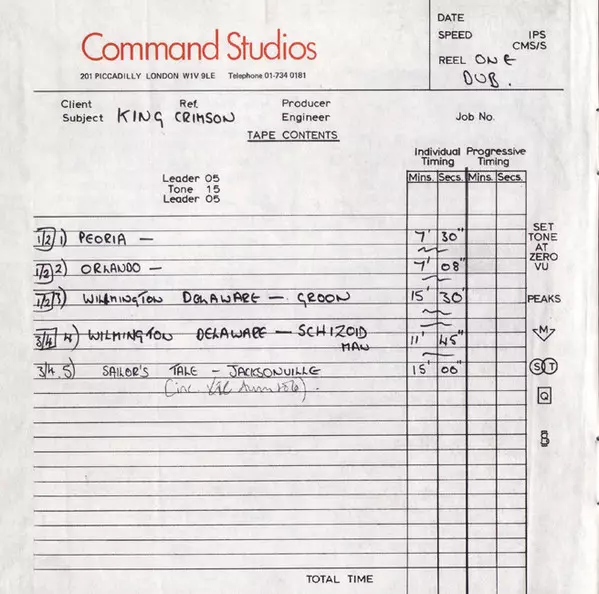 Command Studios
201 PICCADILLY LONDON W1V 9LE Telephone 01-734 0181
DATE
SPEED IPS
CMS/S
REEL ONE
DUB.
Client Ref. Producer
Subject KING CRIMSON Engineer Job No.
TAPE CONTENTS
Individual Timing Progressive Timing
Mins. Secs. Mins. Secs.
Leader 05
Tone 15
Leader 05
1/2 1) PEORIA — 7' 30"
1/2 2) ORLANDO — 7' 08"
1/2 3) WILMINGTON DELAWARE — GROON 15' 30'
3/4 4) WILMINGTON DELAWARE — SCHIZOID MAN 11' 45"
3/4 5) SAILOR'S TALE — JACKSONVILLE 15' 00"
(inc.
SET
TONE
AT
ZERO
VU
PEAKS
M
S T
Q
TOTAL TIME